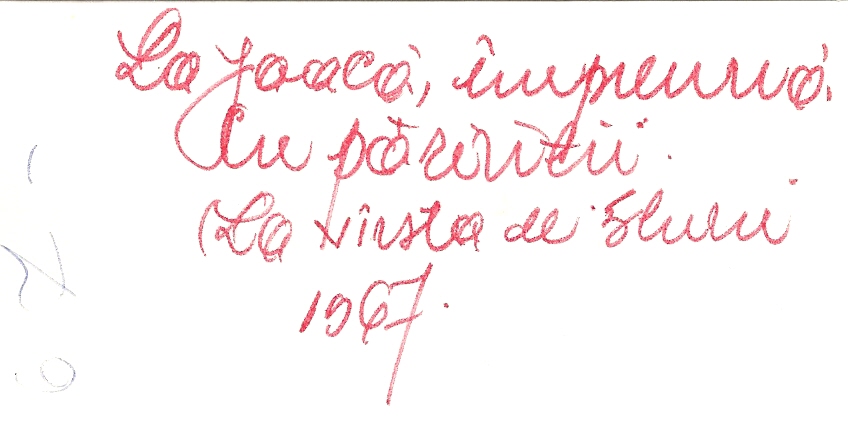 La joacă, împreună
Cu părinții.
(La vîrsta de 5 luni
1967.